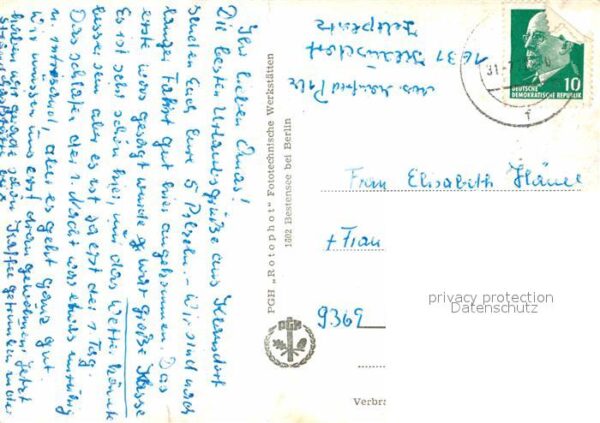 Ihr lieben Omas!
Die besten Urlaubsgrüße aus Klausdorf
senden Euch Eure 5 Pilze. - Wir sind nach
langer Fahrt gut hier angekommen. Das
erste was gesagt wurde war große Klasse
Es ist sehr schön hier, nur das Wetter könnte
besser sein aber es ist ja erst der 1. Tag.
Das schlafen, der 1. Nacht war etwas unruhig
aber es geht ganz gut.
Wir müssen uns erst dran gewöhnen. Jetzt
haben wir gerade schön Kaffee getrunken
PGH „Rotophot" Fototechnische Werkstätten
1602 Bestensee bei Berlin
Manfred Pilz
1631 Klausdorf
Zeltplatz
31.7
10
DEUTSCHE
DEMOKRATISCHE REPUBLIK
Frau Elisabeth
+ Frau
9369
privacy protection
Datenschutz
Verbr